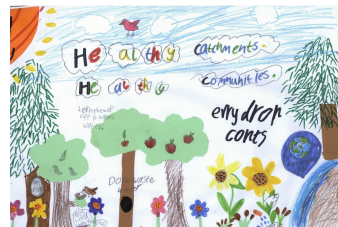 Healthy catchments.
Healthy communities.
evry drop
conts
Dont waste
water